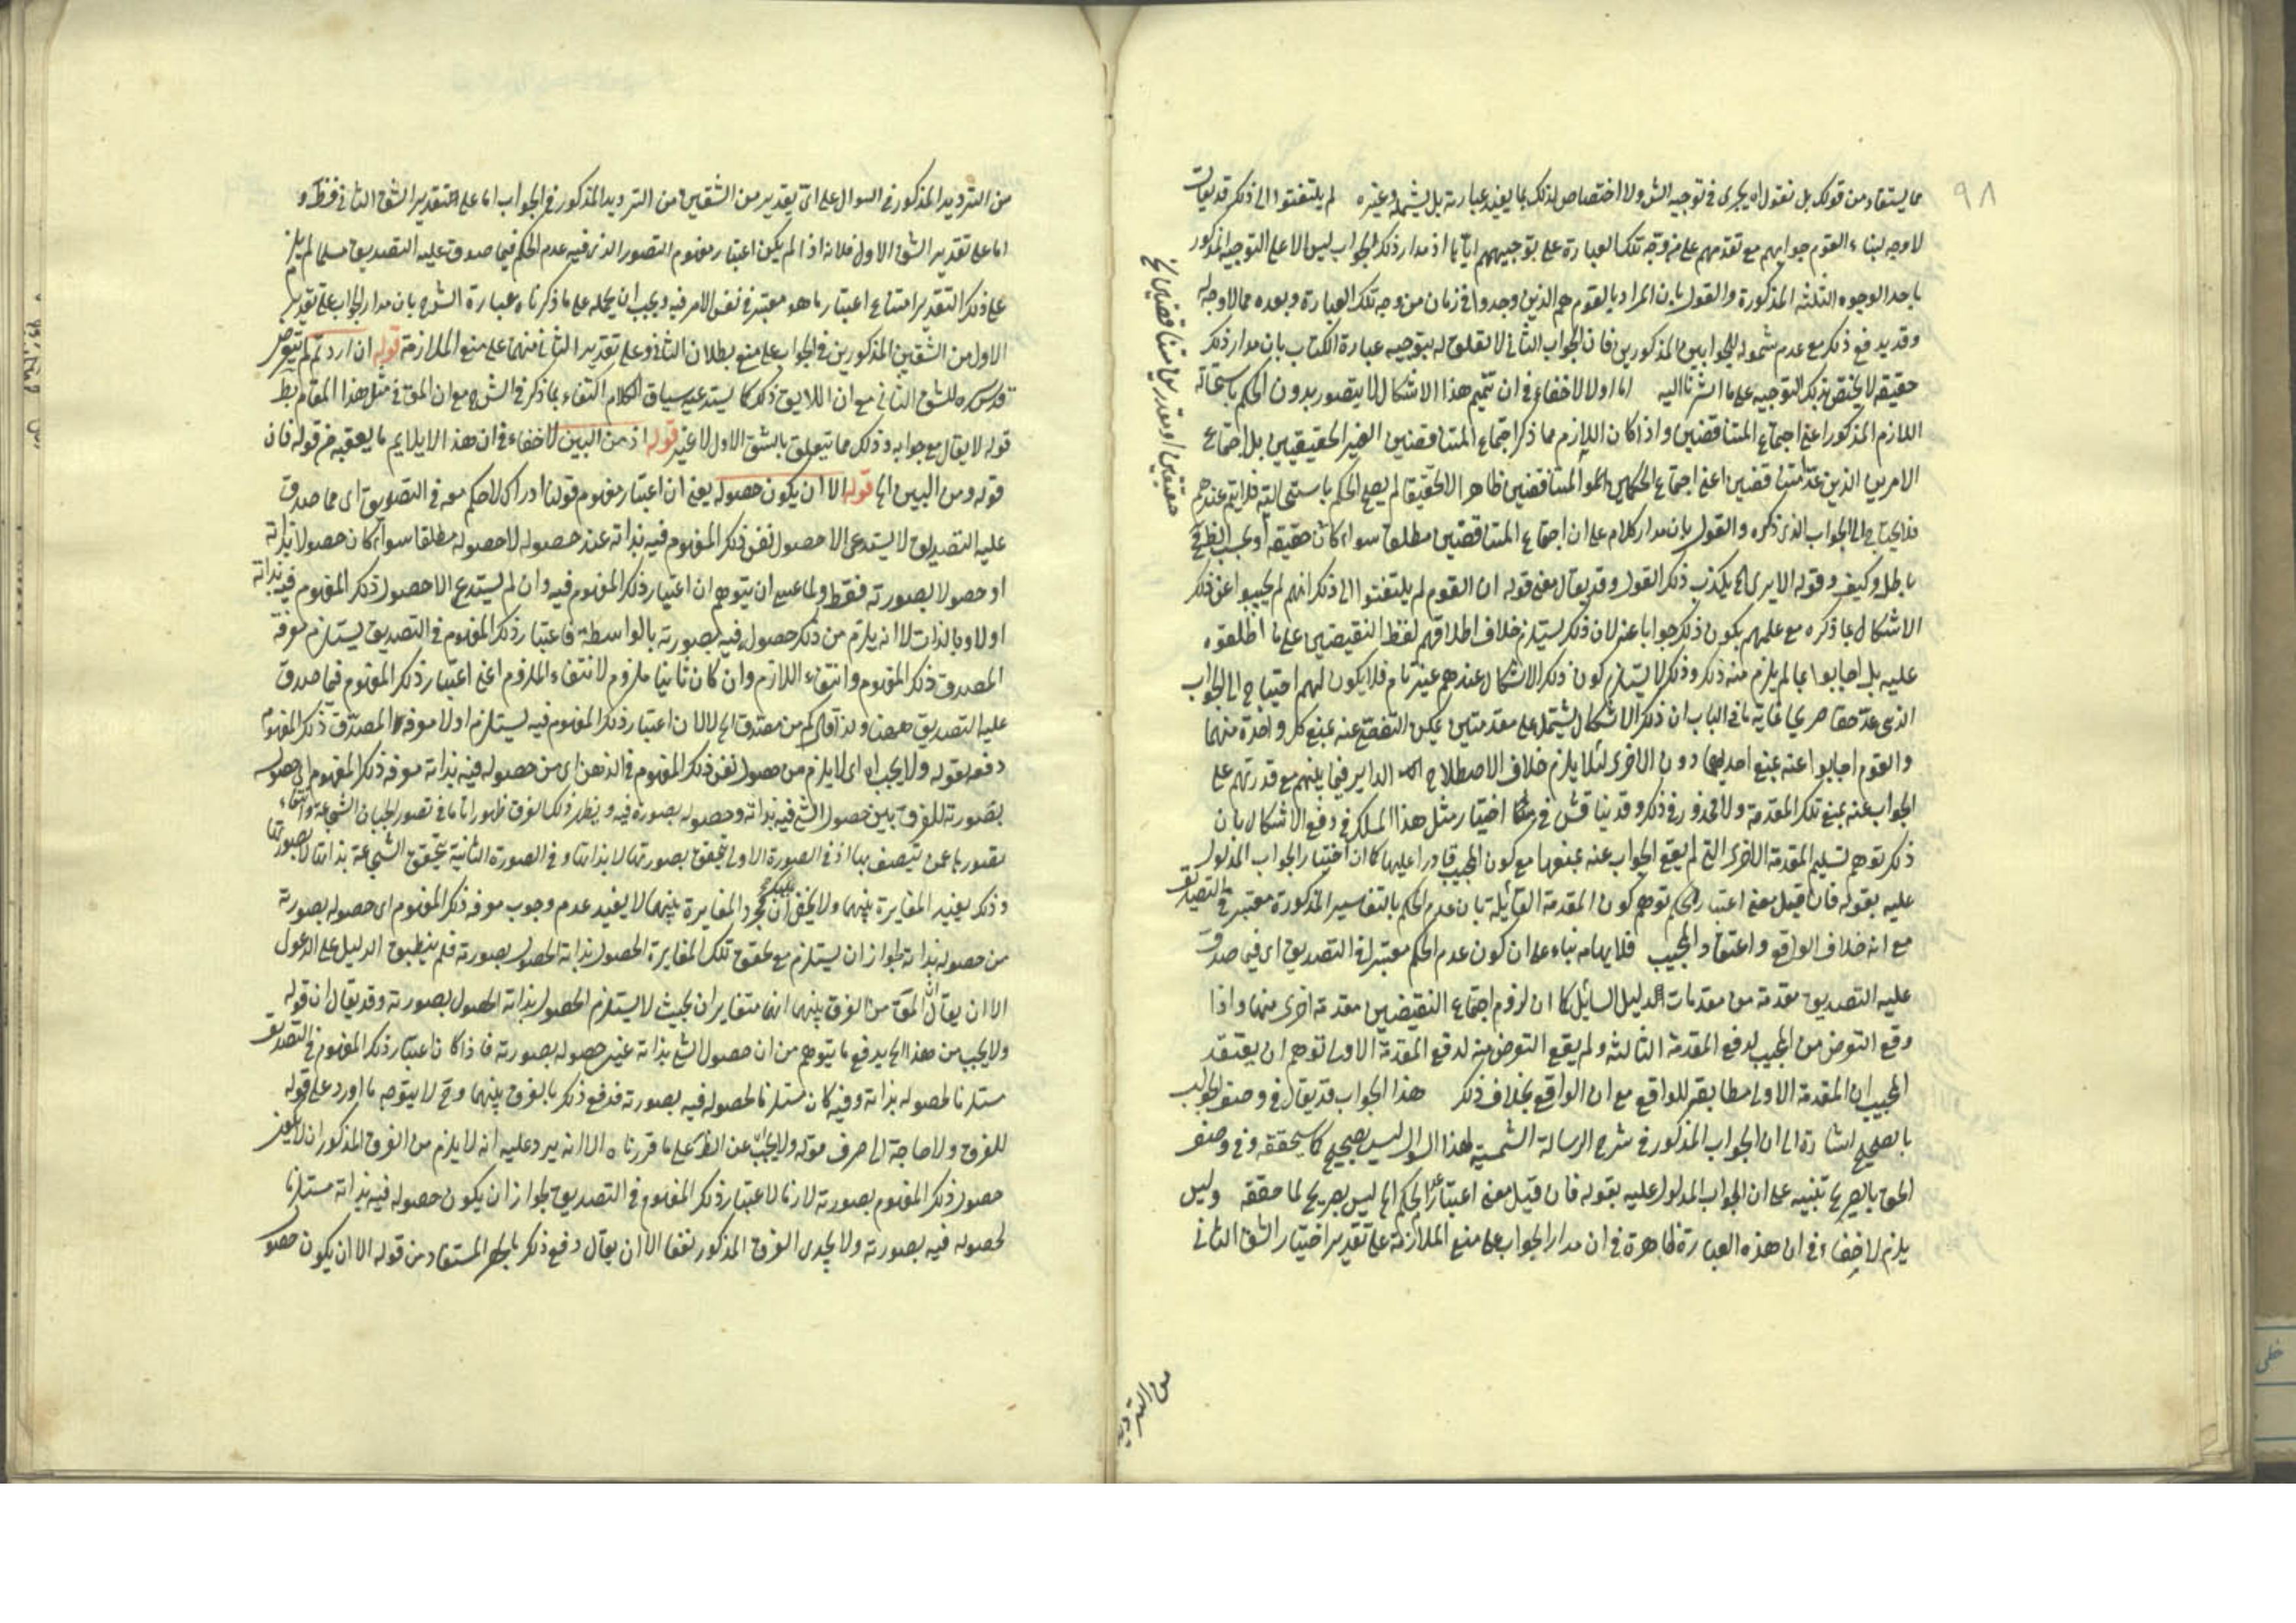 ٩٨
مما يستفاد من قولك بل نقول انه يجرى فى توجيه الش ولا اختصاص لذلك بما يفيد عبارته بل يشمله وغيره لم يلتفتوا الى ذلك قد يقال
لا وجه لبناء القوم جوابهم مع تقدمهم على من وجه تلك العبارة على توجيههم اياها اذ مدار ذلك الجواب ليس الا على التوجيه المذكور
باحد الوجوه الثلثة المذكورة والقول بان المراد بالقوم هم الذين وجدوا فى زمان من وجه تلك العبارة وبعده مما لا وجه له
وقد يدفع ذلك مع عدم شموله للجوابين المذكورين فان الجواب الثانى لا تعلق له بتوجيه عبارة الكتاب بان مدار ذلك
حقيقة لا يختص بذلك التوجيه على ما اشرنا اليه اما اولا لاخفاء فى ان تتميم هذا الاشكال لا يتصور بدون الحكم باستحالة
اللازم المذكور اعنى اجتماع المتناقضين واذا كان اللازم مما ذكر اجتماع المتناقضين الغير الحقيقيين بل اجتماع
الامرين الذين عدا متناقضين اعنى اجتماع الحكمين المتناقضين ظاهرا لا حقيقة لم يصح الحكم باستحالته فلا يتم عندهم
فلا يحتاج الى الجواب الذى ذكره والقول بان مدار كلام على ان اجتماع المتناقضين مطلقا سواء كان حقيقة او بحسب الظ
باطل وكيف وقوله الا يرى الخ يكذب ذلك القول وقد يقال معنى قوله ان القوم لم يلتفتوا الى ذلك انهم لم يجيبوا عن ذلك
الاشكال بما ذكره مع علمهم بكون ذلك جوابا عنه لان ذلك يستلزم خلاف اطلاقهم لفظ النقيضين على ما اطلقوه
عليه بل اجابوا بما لم يلزم منه ذلك وذلك لا يستلزم كون ذلك الاشكال عندهم غير تام فلا يكون لهم احتياج الى الجواب
الذى عدّ حقا صريحا غاية ما فى الباب ان ذلك الاشكال يشتمل على مقدمتين يمكن التفصى عنه بمنع كل واحدة منهما
والقوم اجابوا عنه بمنع احديهما دون الاخرى لئلا يلزم خلاف الاصطلاح الداير فيما بينهم مع قدرتهم على
الجواب عنه بمنع تلك المقدمة ولا محذور فى ذلك وقد يناقش فى اختيار مثل هذا المسلك فى دفع الاشكال بان
ذلك توهم تسليم المقدمة الاخرى التى لم يقع الجواب عنه بمنعها مع كون المجيب قادرا عليها كما ان اختيار الجواب المدلول
عليه بقوله فان قيل معنى اعتبار الخ يوهم كون المقدمة القائلة بان عدم الحكم بالتفاسير المذكورة معتبر فى التصديق
مع انه خلاف الواقع واعتقاد المجيب فلا يهامه بناء على ان كون عدم الحكم معتبرا فى التصديق اى فيما صدق
عليه التصديق مقدمة من مقدمات الدليل السايل كما ان لزوم اجتماع النقيضين مقدمة اخرى منها واذا
وقع التعرض من المجيب لدفع المقدمة الثالثة ولم يقع التعرض منه لدفع المقدمة الاولى توهم ان يعتقد
المجيب ان المقدمة الاولى مطابقة للواقع مع ان الواقع بخلاف ذلك هذا الجواب قد يقال فى وصف الجواب
بالصحيح اشارة الى ان الجواب المذكور فى شرح الرسالة الشمسية لهذا السؤال ليس بصحيح كما سيحققه وفى وصف
الحق بالصريح تنبيه على ان الجواب المدلول عليه بقوله فان قيل معنى اعتبار الحكم الخ ليس بصريح لما حققه وليس
يلزم لاخفاء فى ان هذه العبارة ظاهرة فى ان مدار الجواب على منع الملازمة على تقدير اختيار الشق الثانى
من الترديد
من الترديد المذكور فى السوال على اى تقدير من الشقين من الترديد المذكور فى الجواب اما على التقدير الشق الثانى فظ و
اما على تقدير الشق الاول فلانه اذا لم يكن اعتبار مفهوم التصور الذى فيه عدم الحكم فيما صدق عليه التصديق مسلما لم يلزم
على ذلك التقدير امتناع اعتبار ما هو معتبر فى نفس الامر فيه ويجب ان يحمله على ما ذكرناه عبارة الشرح بان مدار الجواب على تقدير
الاول من الشقين المذكورين فى الجواب على منع بطلان الثانى وعلى تقدير الثانى منهما على منع الملازمة قوله ان اردتم لم يتعرض
قدس سره للشق الثانى مع ان اللايق ذلك كما يستدعيه سياق الكلام اكتفاء بما ذكر فى الشرح مع ان المق فى مثل هذا المقام بط
قوله لا يقال مع جوابه وذلك مما يتعلق بالشق الاول لا غير قوله اذ من البين لاخفاء فى ان هذا لا يلايم ما يعقبه من قوله فان
قوله ومن البين الخ قوله الا ان يكون حصوله يعنى ان اعتبار مفهوم قولنا ادراك لا حكم معه فى التصديق اى مما صدق
عليه التصديق لا يستدعى الا حصول نفس ذلك المفهوم فيه بذاته عند حصوله لا حصوله مطلقا سواء كان حصولا بذاته
او حصولا بصورته فقط ولما عسى ان يتوهم ان اعتبار ذلك المفهوم فيه وان لم يستدع الا حصول ذلك المفهوم فيه بذاته
اولا وبالذات الا انه يلزم من ذلك حصوله فيه بصورته بالواسطة فاعتبار ذلك المفهوم فى التصديق يستلزم معرفة
المصدق ذلك المفهوم وانتفاء اللازم وان كان ثانيا ملزوم لانتفاء الملزوم اعنى اعتبار ذلك المفهوم فيما صدق
عليه التصديق ههنا ولذا قال كم من مصدق الخ لا لان اعتبار ذلك المفهوم فيه يستلزم اولا معرفة المصدق ذلك المفهوم
دفعه بقوله ولا يجب اه اى لا يلزم من حصول نفس ذلك المفهوم فى الذهن اى من حصوله فيه بذاته معرفة ذلك المفهوم اى حصوله
بصورته للفرق بين حصول الشئ فيه بذاته وحصوله بصورة فيه ويظهر ذلك الفرق ظهورا تاما فى تصور الجبان الشجاعة وانتفاء
تصورها عمن يتصف بها اذ فى الصورة الاولى تحقق بصورتها لا بذاتها وفى الصورة الثانية يتحقق الشجاعة بذاتها لا بصورتها
وذلك يفيد المغايرة بينهما ولا يخفى عليك ان مجرد المغايرة بينهما لا يفيد عدم وجوب معرفة ذلك المفهوم اى حصوله بصورته
من حصوله بذاته لجواز ان يستلزم مع تحقق تلك المغايرة الحصول بذاته الحصول بصورته فلم ينطبق الدليل على الدعوى
الا ان يقال المق من الفرق بينهما انهما متغايران بحيث لا يستلزم الحصول بذاته الحصول بصورته وقد يقال ان قوله
ولا يجب من هذا الخ يدفع ما يتوهم من ان حصول الشئ بذاته عين حصوله بصورته فاذا كان اعتبار ذلك المفهوم فى التصديق
مستلزما لحصوله بذاته وفيه كان مستلزما لحصوله فيه بصورته فدفع ذلك بالفرق بينهما وح لا يتوجه ما اورد على قوله
للفرق ولا حاجة الى صرف قوله ولا يجب عن الظ على ما قررناه الا انه يرد عليه انه لا يلزم من الفرق المذكور ان لا يكون
حصول ذلك المفهوم بصورته لازما لاعتبار ذلك المفهوم فى التصديق لجواز ان يكون حصوله فيه بذاته مستلزما
لحصوله فيه بصورته ولا يجدى الفرق المذكور نفعا الا ان يقال دفع ذلك بالحصر المستفاد من قوله الا ان يكون حصوله